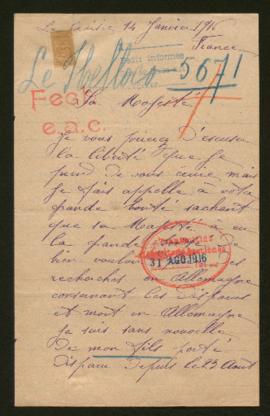 14 Janvier 1916
France
5671
Fech
Sa Majesté
e.a.c.
Je vous prie d'excuser
la liberté que je
prend de vous écrire mais
je fais appelle a votre
grande bonté sachant
que sa Majesté a eu
la grande
bien vouloir
recherches en Allemagne
31 AGO.1916
concernant les disparus
et mort en Allemagne
je suis sans nouvelle
de mon fils porté
disparu depuis le 23 Aout